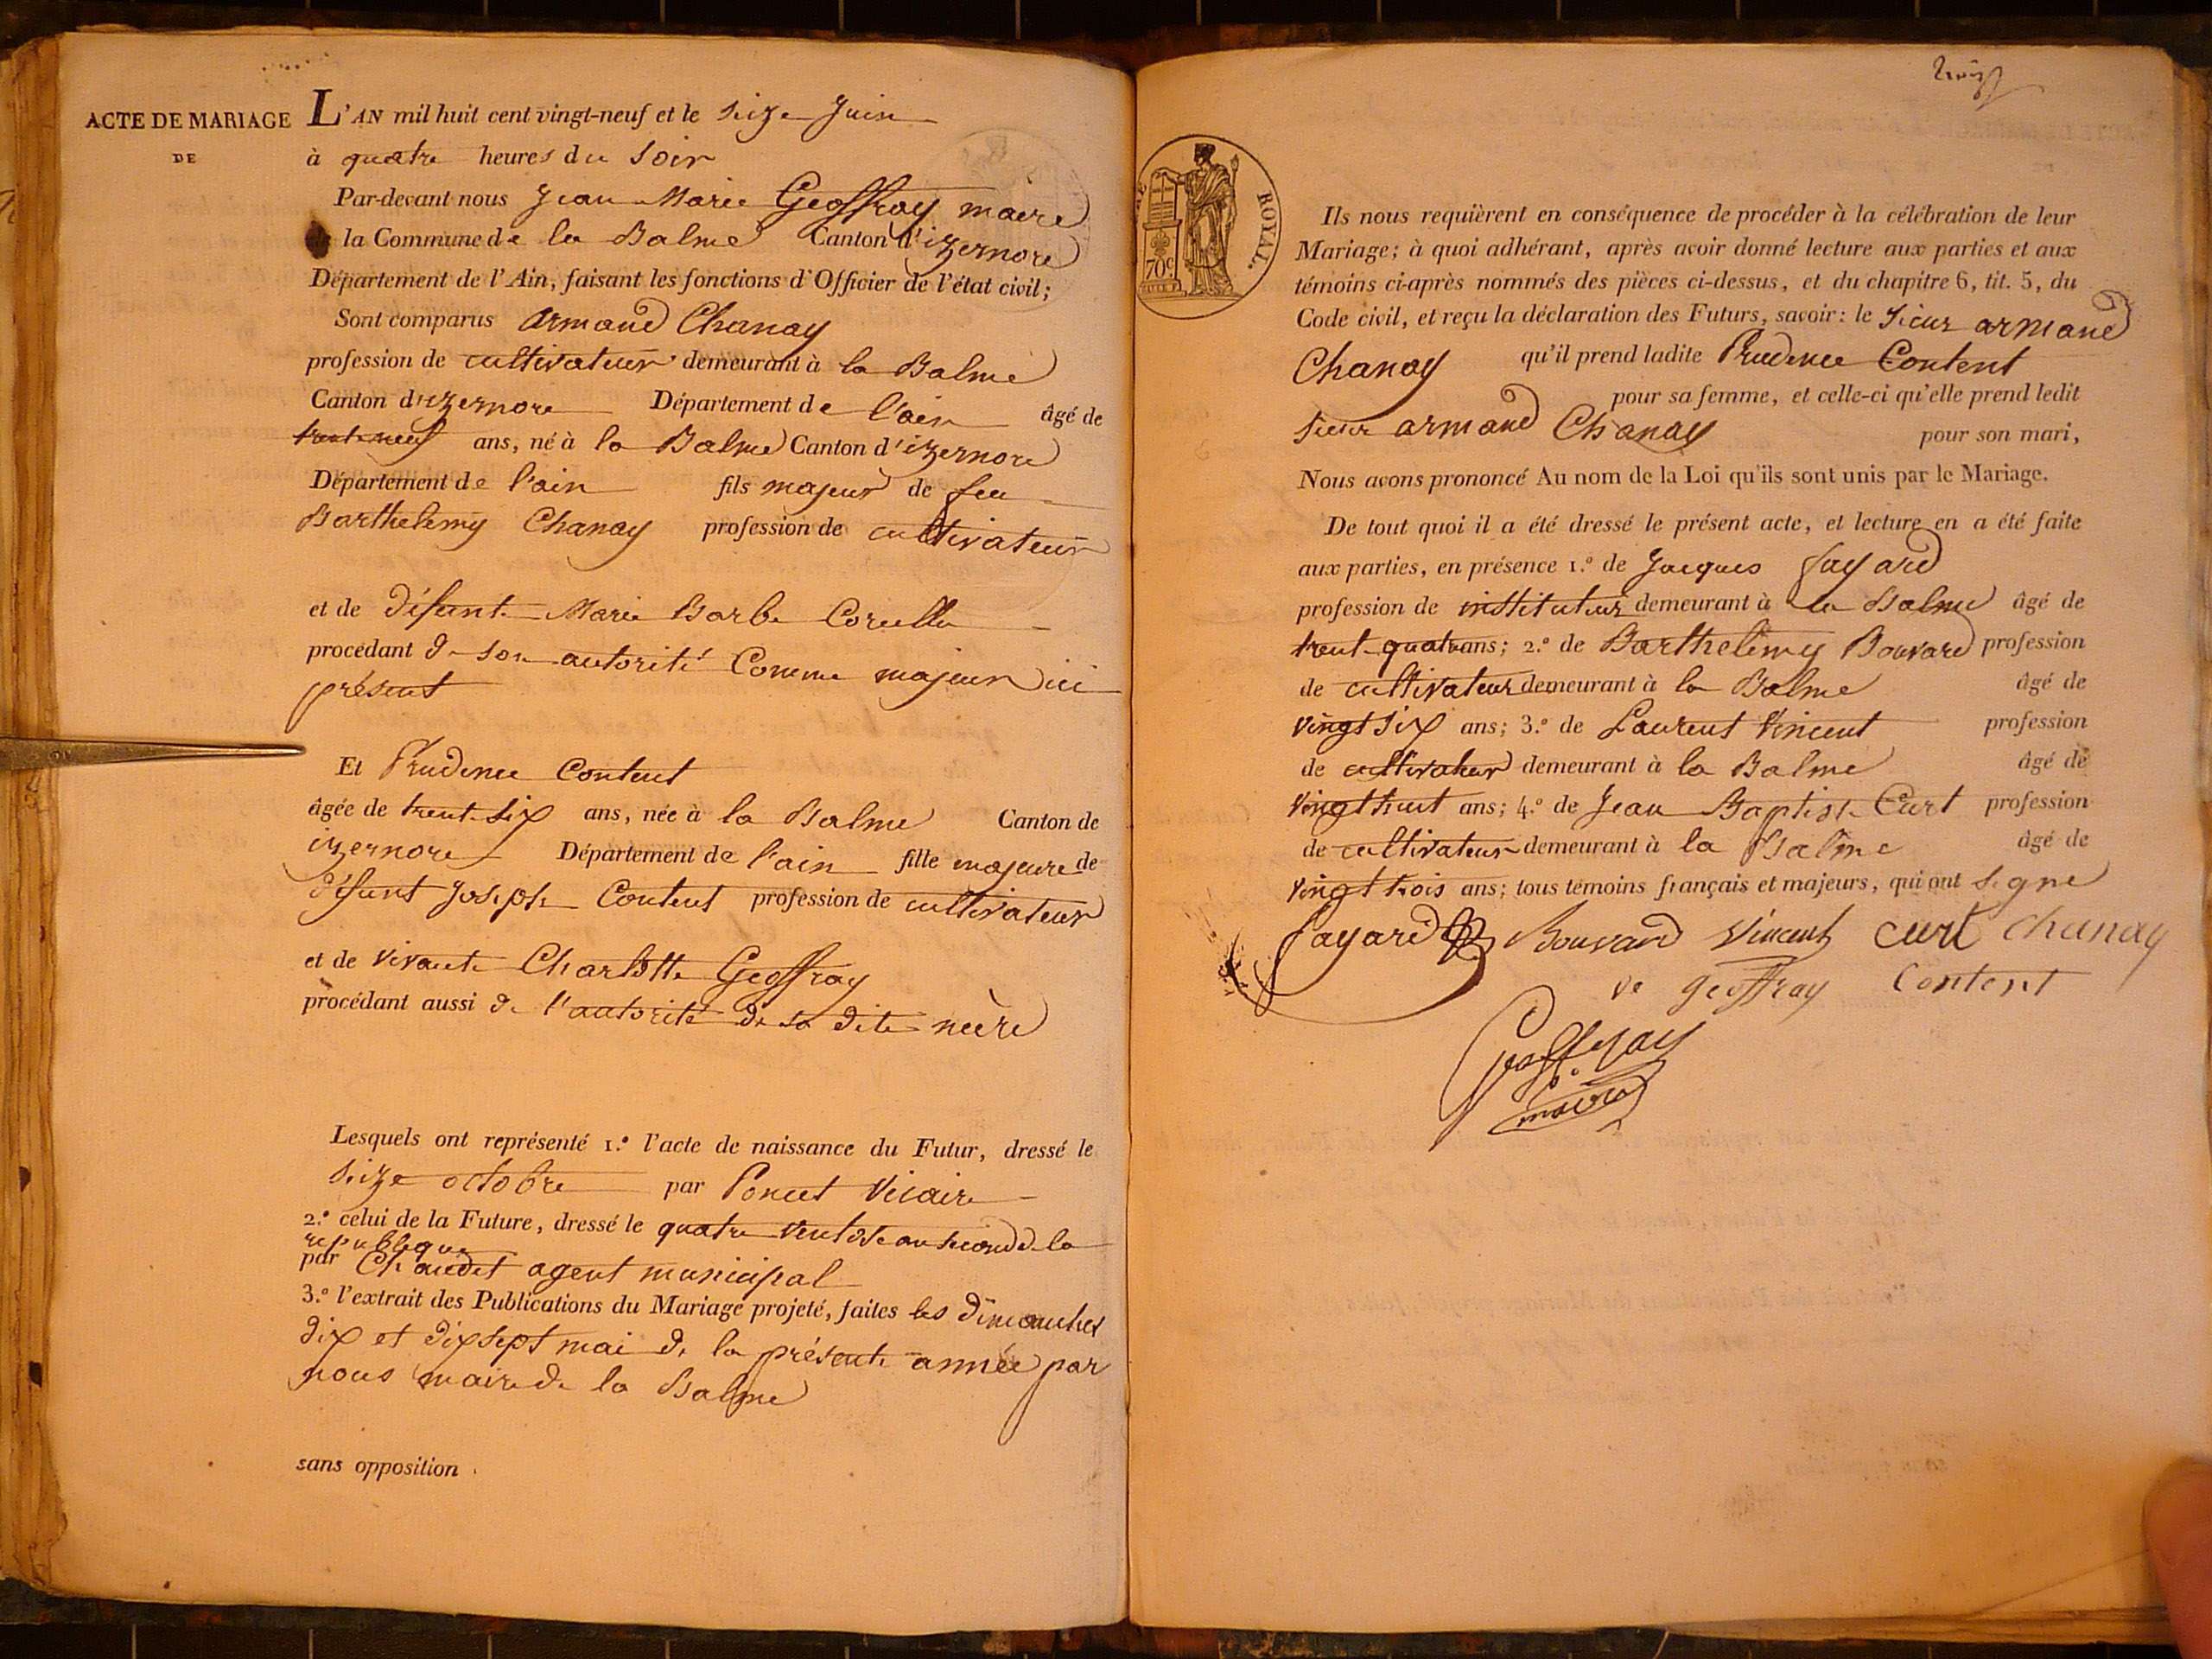 ACTE DE MARIAGE
DE
L'AN mil huit cent vingt-neuf et le seize Juin
à quatre heures du soir
Par-devant nous Jean Marie Geoffray maire
la Commune de la Balme Canton d'izernore
Département de l'Ain, faisant les fonctions d'Officier de l'état civil;
Sont comparus armand Chanay
profession de cultivateur demeurant à la Balme
Canton d'izernore Département de l'ain âgé de
trente neuf ans, né à la Balme Canton d'izernore
Département de l'ain fils majeur de feu
Barthelemy Chanay profession de cultivateur
et de défunte Marie Barbe
procédant de son autorité Comme majeur ici
présent
Et Prudence Content
âgée de trente six ans, née à la Balme Canton de
izernore Département de l'ain fille majeure de
défunt Joseph Content profession de cultivateur
et de vivante Charlotte Geoffray
procédant aussi de l'autorité de sa dite mère
Lesquels ont représenté 1.º l'acte de naissance du Futur, dressé le
seize octobre par Poncet Vicaire
2.º celui de la Future, dressé le quatre ventose an second de la
republique
par Chaudet agent municipal
3.º l'extrait des Publications du Mariage projeté, faites les dimanches
dix et dix sept mai de la présente année par
nous maire de la Balme
sans opposition
ROYAL.
70c
Ils nous requièrent en conséquence de procéder à la célébration de leur
Mariage; à quoi adhérant, après avoir donné lecture aux parties et aux
témoins ci-après nommés des pièces ci-dessus, et du chapitre 6, tit. 5, du
Code civil, et reçu la déclaration des Futurs, savoir: le sieur armand
Chanay qu'il prend ladite Prudence Content
pour sa femme, et celle-ci qu'elle prend ledit
sieur armand Chanay pour son mari,
Nous avons prononcé Au nom de la Loi qu'ils sont unis par le Mariage.
De tout quoi il a été dressé le présent acte, et lecture en a été faite
aux parties, en présence 1.º de Jacques fayard
profession de instituteur demeurant à la Balme âgé de
trente quatre ans; 2.º de Barthelemy Bouvard profession
de cultivateur demeurant à la Balme âgé de
vingt six ans; 3.º de Laurent Vincent profession
de cultivateur demeurant à la Balme âgé de
vingt huit ans; 4.º de Jean Baptiste Curt profession
de cultivateur demeurant à la Balme âgé de
vingt trois ans; tous témoins français et majeurs, qui ont signé
fayard Bouvard Vincent curt chanay
ve geoffray Content
Geoffray
maire